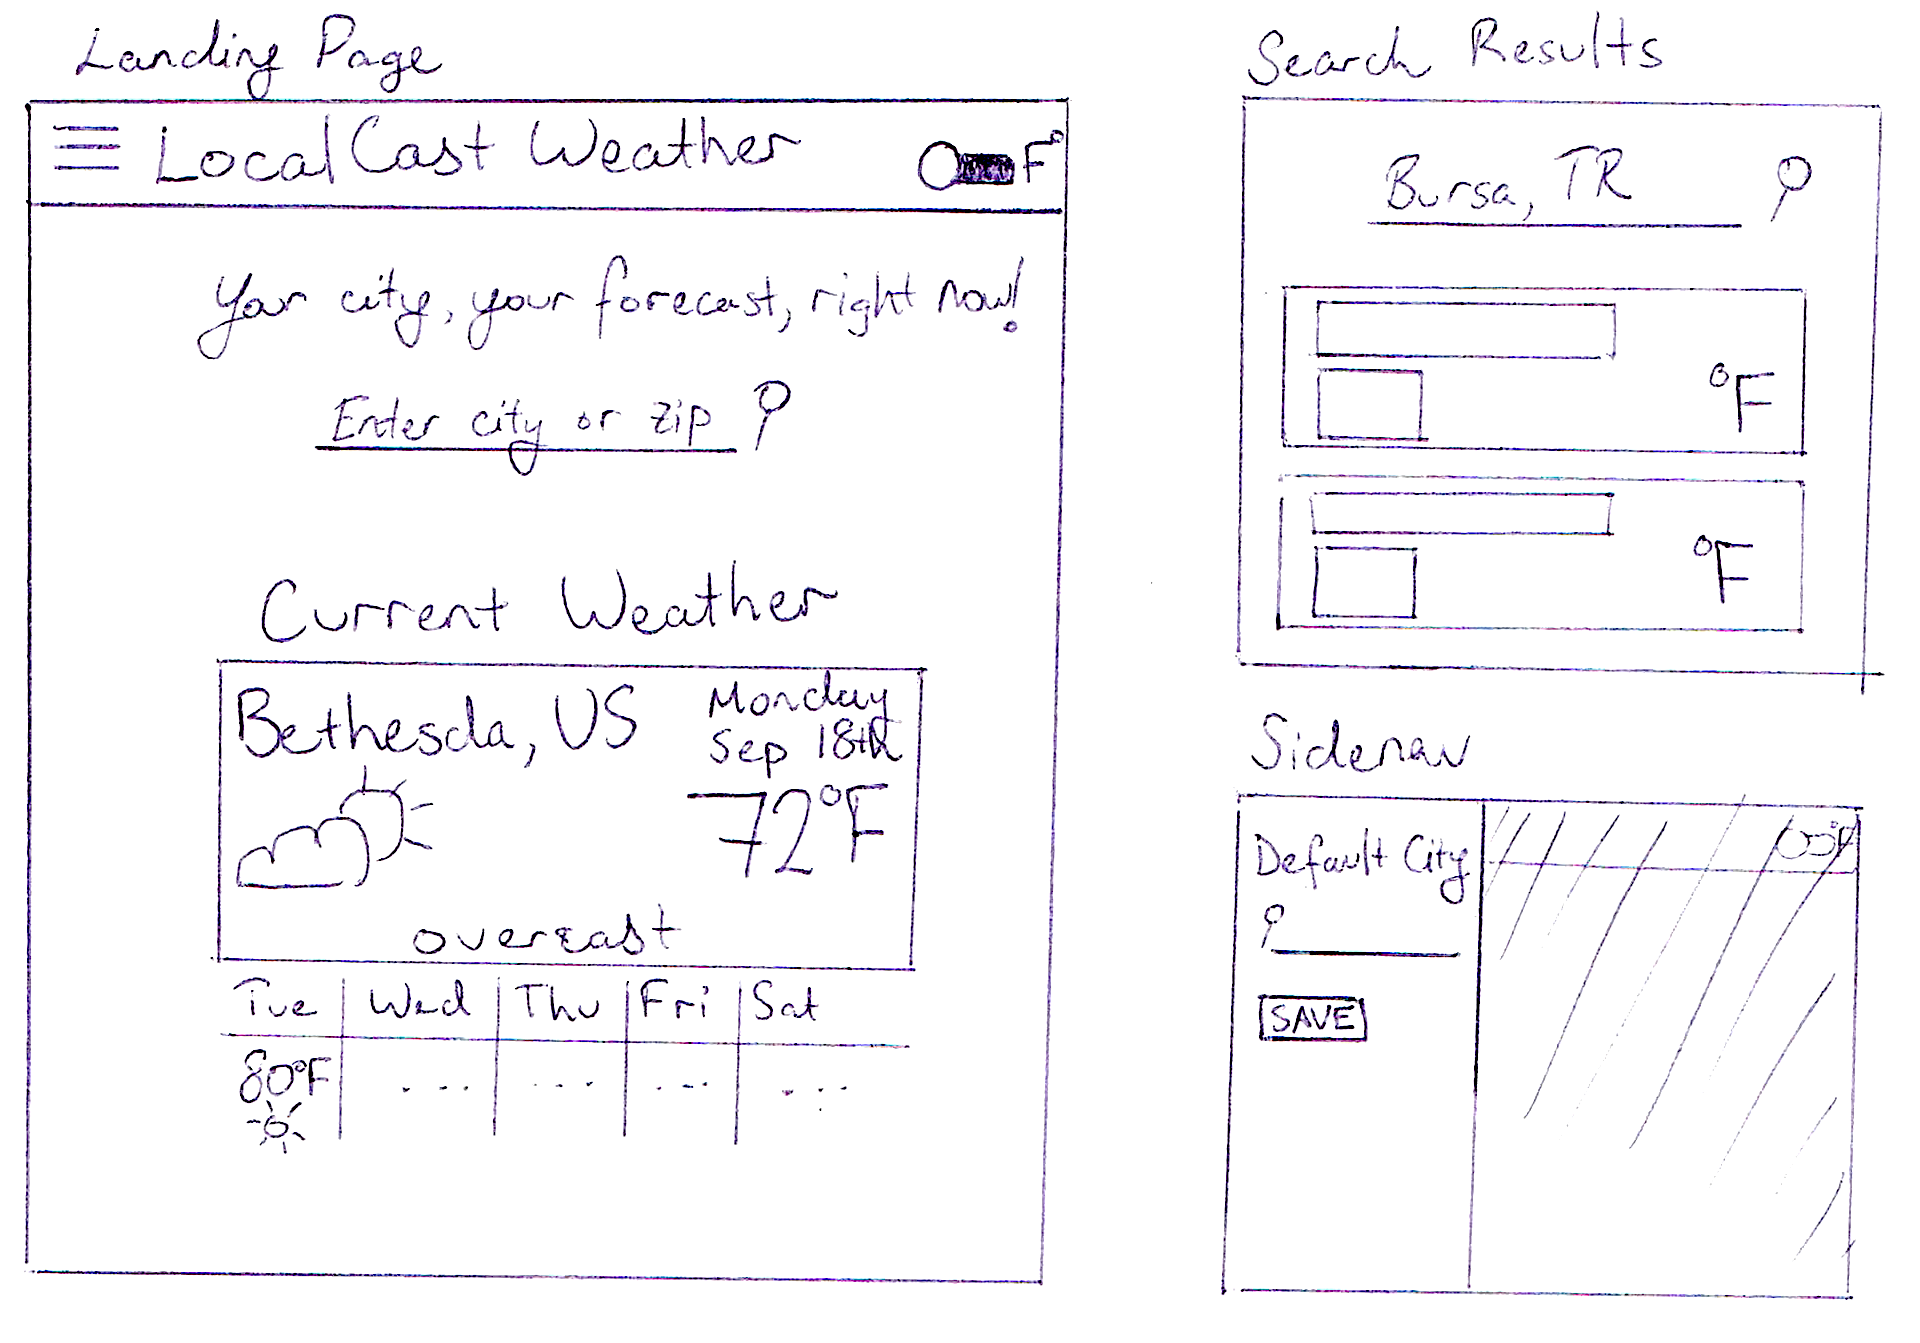 Landing Page
LocalCast Weather F°
Your city, your forecast, right now!
Enter city or zip
Current Weather
Bethesda, US
Monday
Sep 18th
72°F
overcast
Tue Wed Thu Fri Sat
80°F ... ... ... ...
Search Results
Bursa, TR
°F
°F
Sidenav
°F
Default City
SAVE